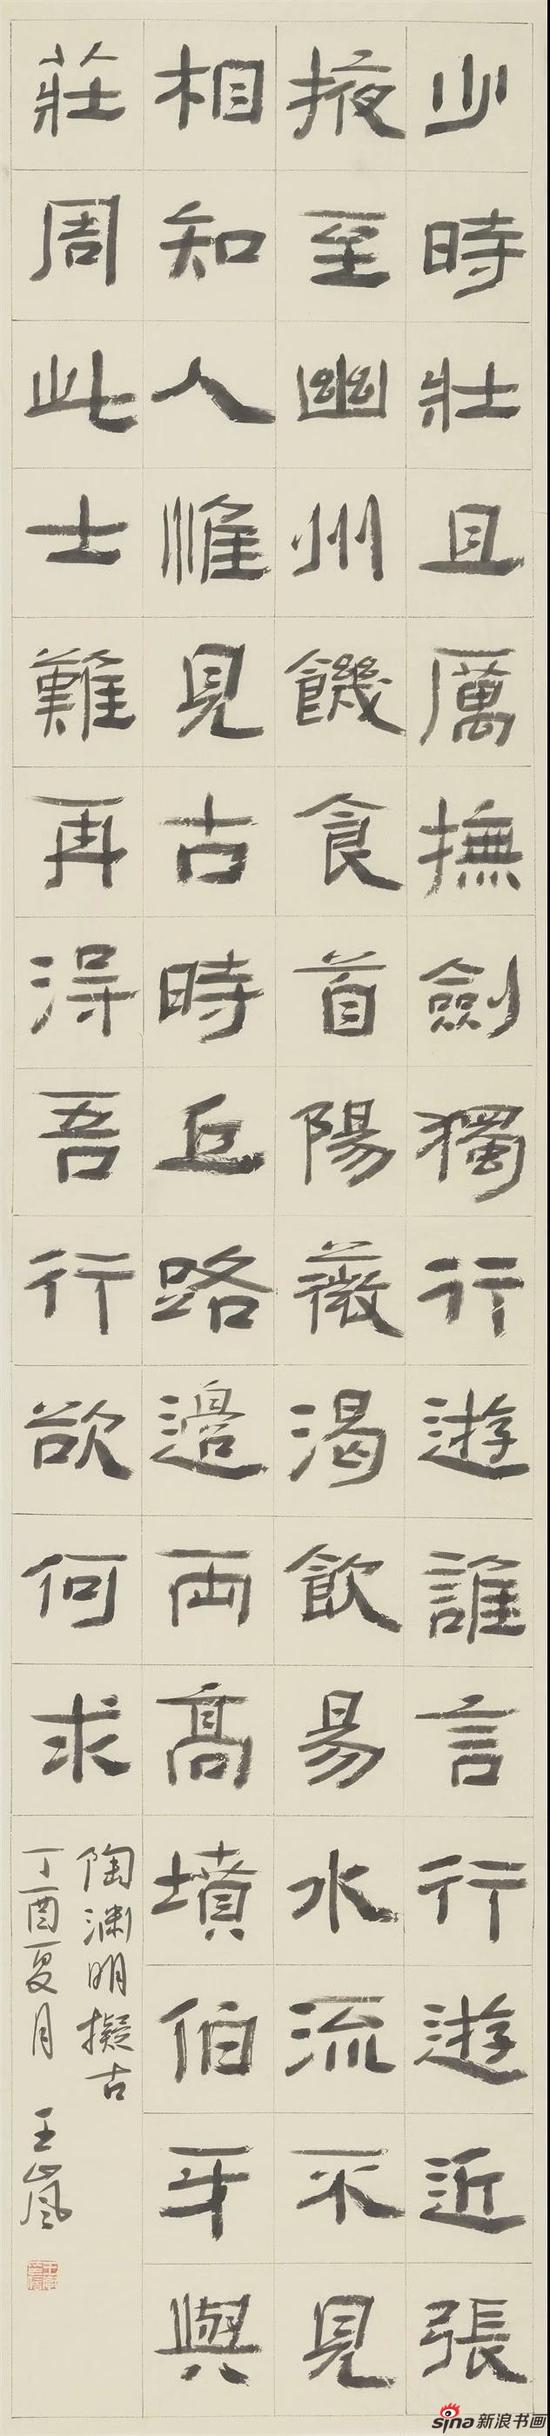 少時壯且厲撫劍獨行遊誰言行遊近張
掖至幽州饑食首陽薇渴飲易水流不見
相知人惟見古時丘路邊兩高墳伯牙與
莊周此士難再淂吾行欲何求
陶渊明擬古
丁酉夏月 王嵐
sina新浪书画